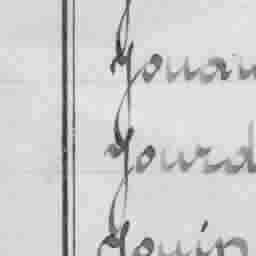 Youan
Yourd
Youin